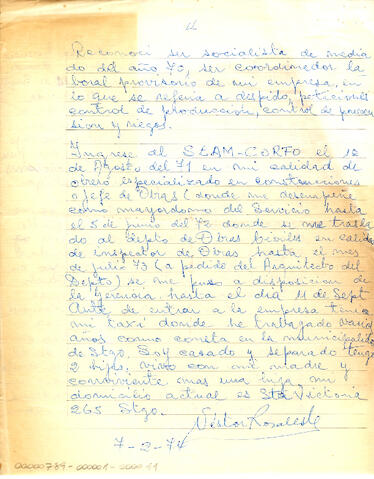 11
Reconoci ser socialista de media
do del año 70, ser coordinador la
boral provisorio de mi empresa, en
lo que se referia a despido, peticiones
control de producción, control de
sion y riegos.
Ingrese al SEAM-CORFO el 12
de Agosto del 71 en mi calidad de
obrero especializado en construcciones
o Jefe de Obras (donde me desempeñe
como mayordomo del Servicio hasta
el 5 de junio del 72 donde se me trasla
do al Depto de Obras Civiles en calidad
de inspector de Obras hasta el mes
de julio 73 (a pedido del Arquitecto del
Depto) se me puso a disposicion de
la Gerencia hasta el dia 11 de Sept
Ante de entrar a la empresa tenia
mi taxi donde he trabajado varios
años como coneta en la municipalidad
de Stgo. Soy casado y separado tengo
2 hijos, vivo con mi madre y
conviviente mas una hija mi
domicilio actual es Sta Victoria
265 Stgo.
Néstor Rosales
7-2-74
00000789-000001-000011